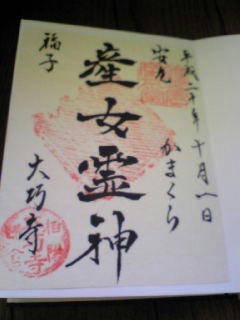 平成二十年十月八日
安産
かまくら
産女霊神
大巧寺
福子